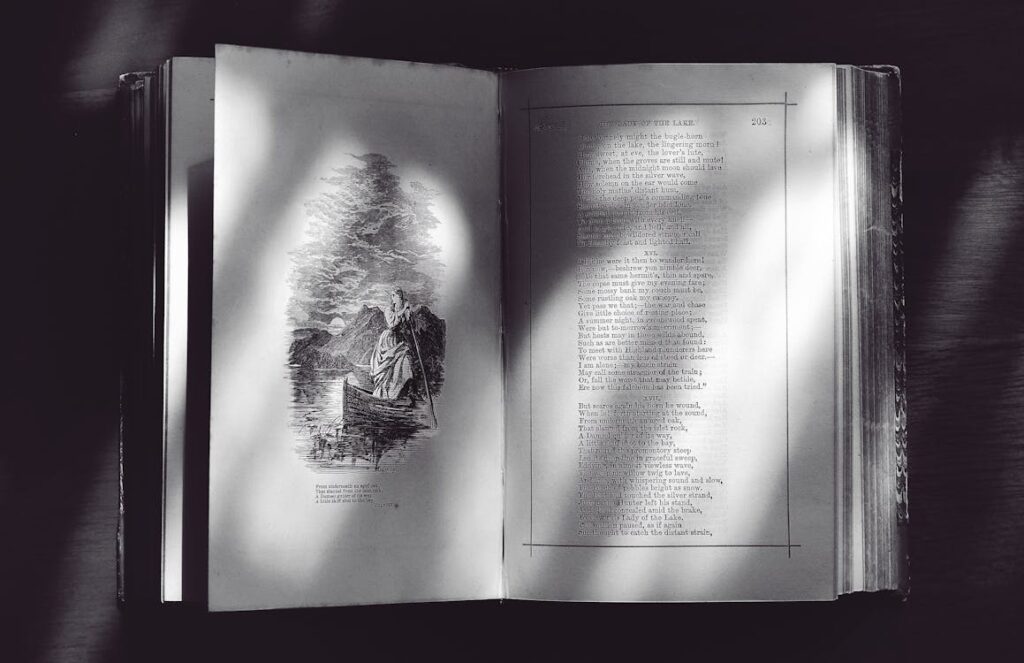 From underneath an aged oak,
That slanted from the islet rock,
A Damsel guider of its way,
A little skiff shot to the bay,
LADY OF THE LAKE. 203
might the bugle-horn
on the lake, the lingering morn!
at eve, the lover's lute,
when the groves are still and mute!
when the midnight moon should lave
forehead in the silver wave,
solemn on the ear would come
matins' distant hum,
the deep peal's commanding tone
and bell, and all,
call
and lighted hall.
XVI.
were it then to wander here!
now,—beshrew yon nimble deer,
that same hermit's, thin and spare,
The copse must give my evening fare;
Some mossy bank my couch must be,
Some rustling oak my canopy.
Yet pass we that;—the war and chase
Give little choice of resting place;
A summer night, in greenwood spent,
Were but to-morrow's merriment;—
But hosts may in these wilds abound,
Such as are better missed than found:
To meet with Highland plunderers here
Were worse than loss of steed or deer.—
I am alone;—my bugle strain
May call some straggler of the train;
Or, fall the worst that may betide,
Ere now this falchion has been tried."
XVII.
But scarce again his horn he wound,
When lo! forth starting at the sound,
From underneath an aged oak,
That slanted from the islet rock,
A Damsel guider of its way,
A little skiff shot to the bay,
That round the promontory steep
line in graceful sweep,
almost viewless wave,
willow twig to lave,
whispering sound and slow,
pebbles bright as snow.
touched the silver strand,
Hunter left his stand,
concealed amid the brake,
Lady of the Lake.
paused, as if again
thought to catch the distant strain,